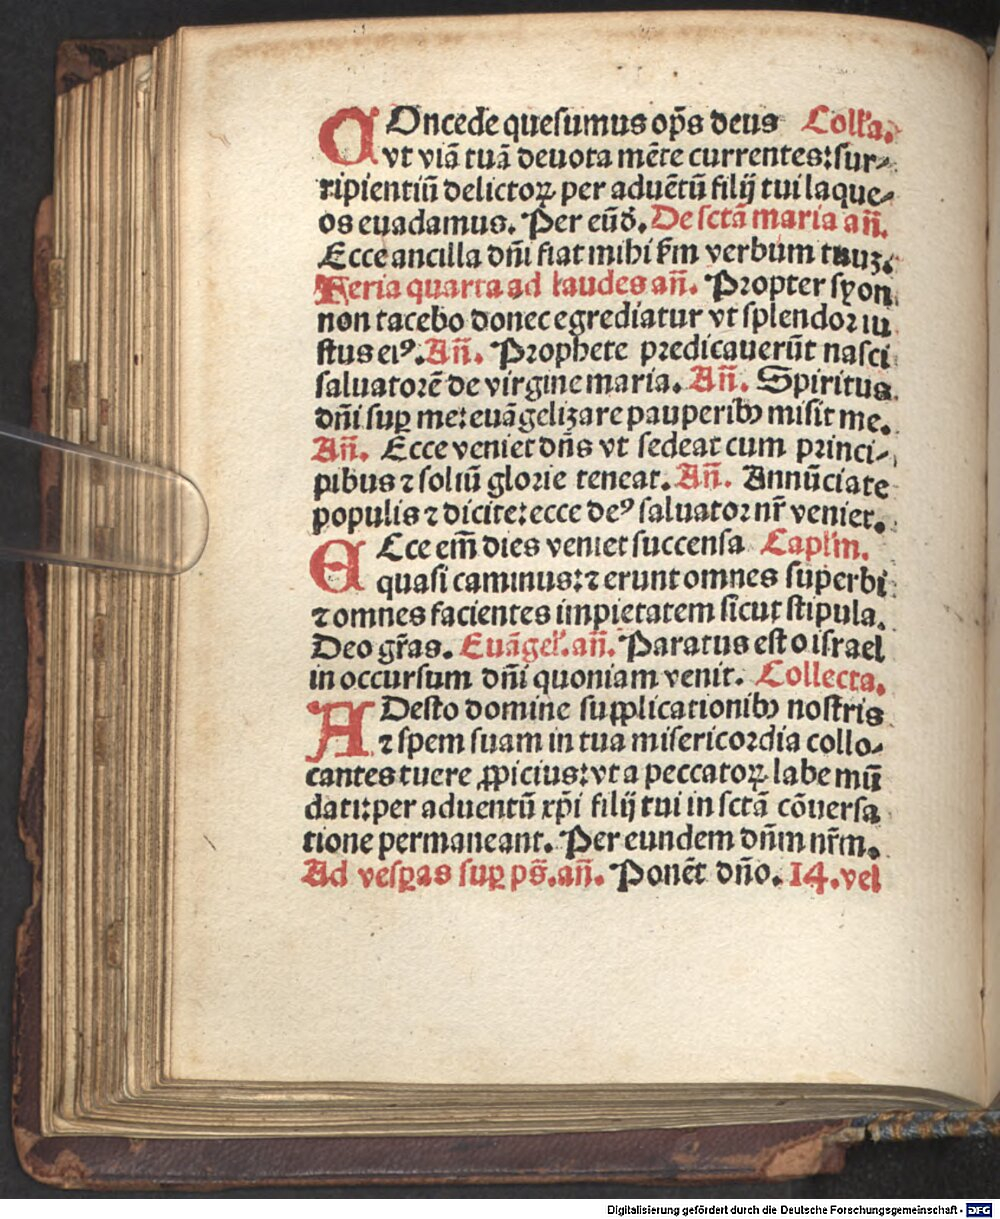 COncede quesumus op̄s deus Coll'a.
vt viā tuā deuota mēte currentes: sur⸗
ripientiū delictoꝝ per aduētū filij tui laque⸗
os euadamus. Per eūd̄. De sctā maria an̄.
Ecce ancilla dn̄i fiat mihi k̄m verbum tuuꝫ.
Feria quarta ad laudes an̄. Propter syon
non tacebo donec egrediatur vt splendor iu
stus eiꝰ. An̄. Prophete predicauerūt nasci
saluatorē de virgine maria. An̄. Spiritus
dn̄i suꝑ me: euāgelizare pauperibꝫ misit me.
An̄. Ecce veniet dn̄s vt sedeat cum princi⸗
pibus ⁊ soliū glorie teneat. An̄. Annūciate
populis ⁊ dicite: ecce deꝰ saluator nr̄ veniet.
ECce em̄ dies veniet succensa Capl'm.
quasi caminus: ⁊ erunt omnes superbi
⁊ omnes facientes impietatem sicut stipula.
Deo gr̄as. Euāgel'. an̄. Paratus esto israel
in occursum dn̄i quoniam venit. Collecta.
ADesto domine supplicationibꝫ nostris
⁊ spem suam in tua misericordia collo⸗
cantes tuere ꝓpicius: vt a peccatoꝝ labe mū
dati: per aduentū xp̄i filij tui in sctā cōuersa
tione permaneant. Per eundem dn̄m nr̄m.
Ad vesꝑas suꝑ ps̄. an̄. Ponēt dn̄o. 14. vel
Digitalisierung gefördert durch die Deutsche Forschungsgemeinschaft - DFG